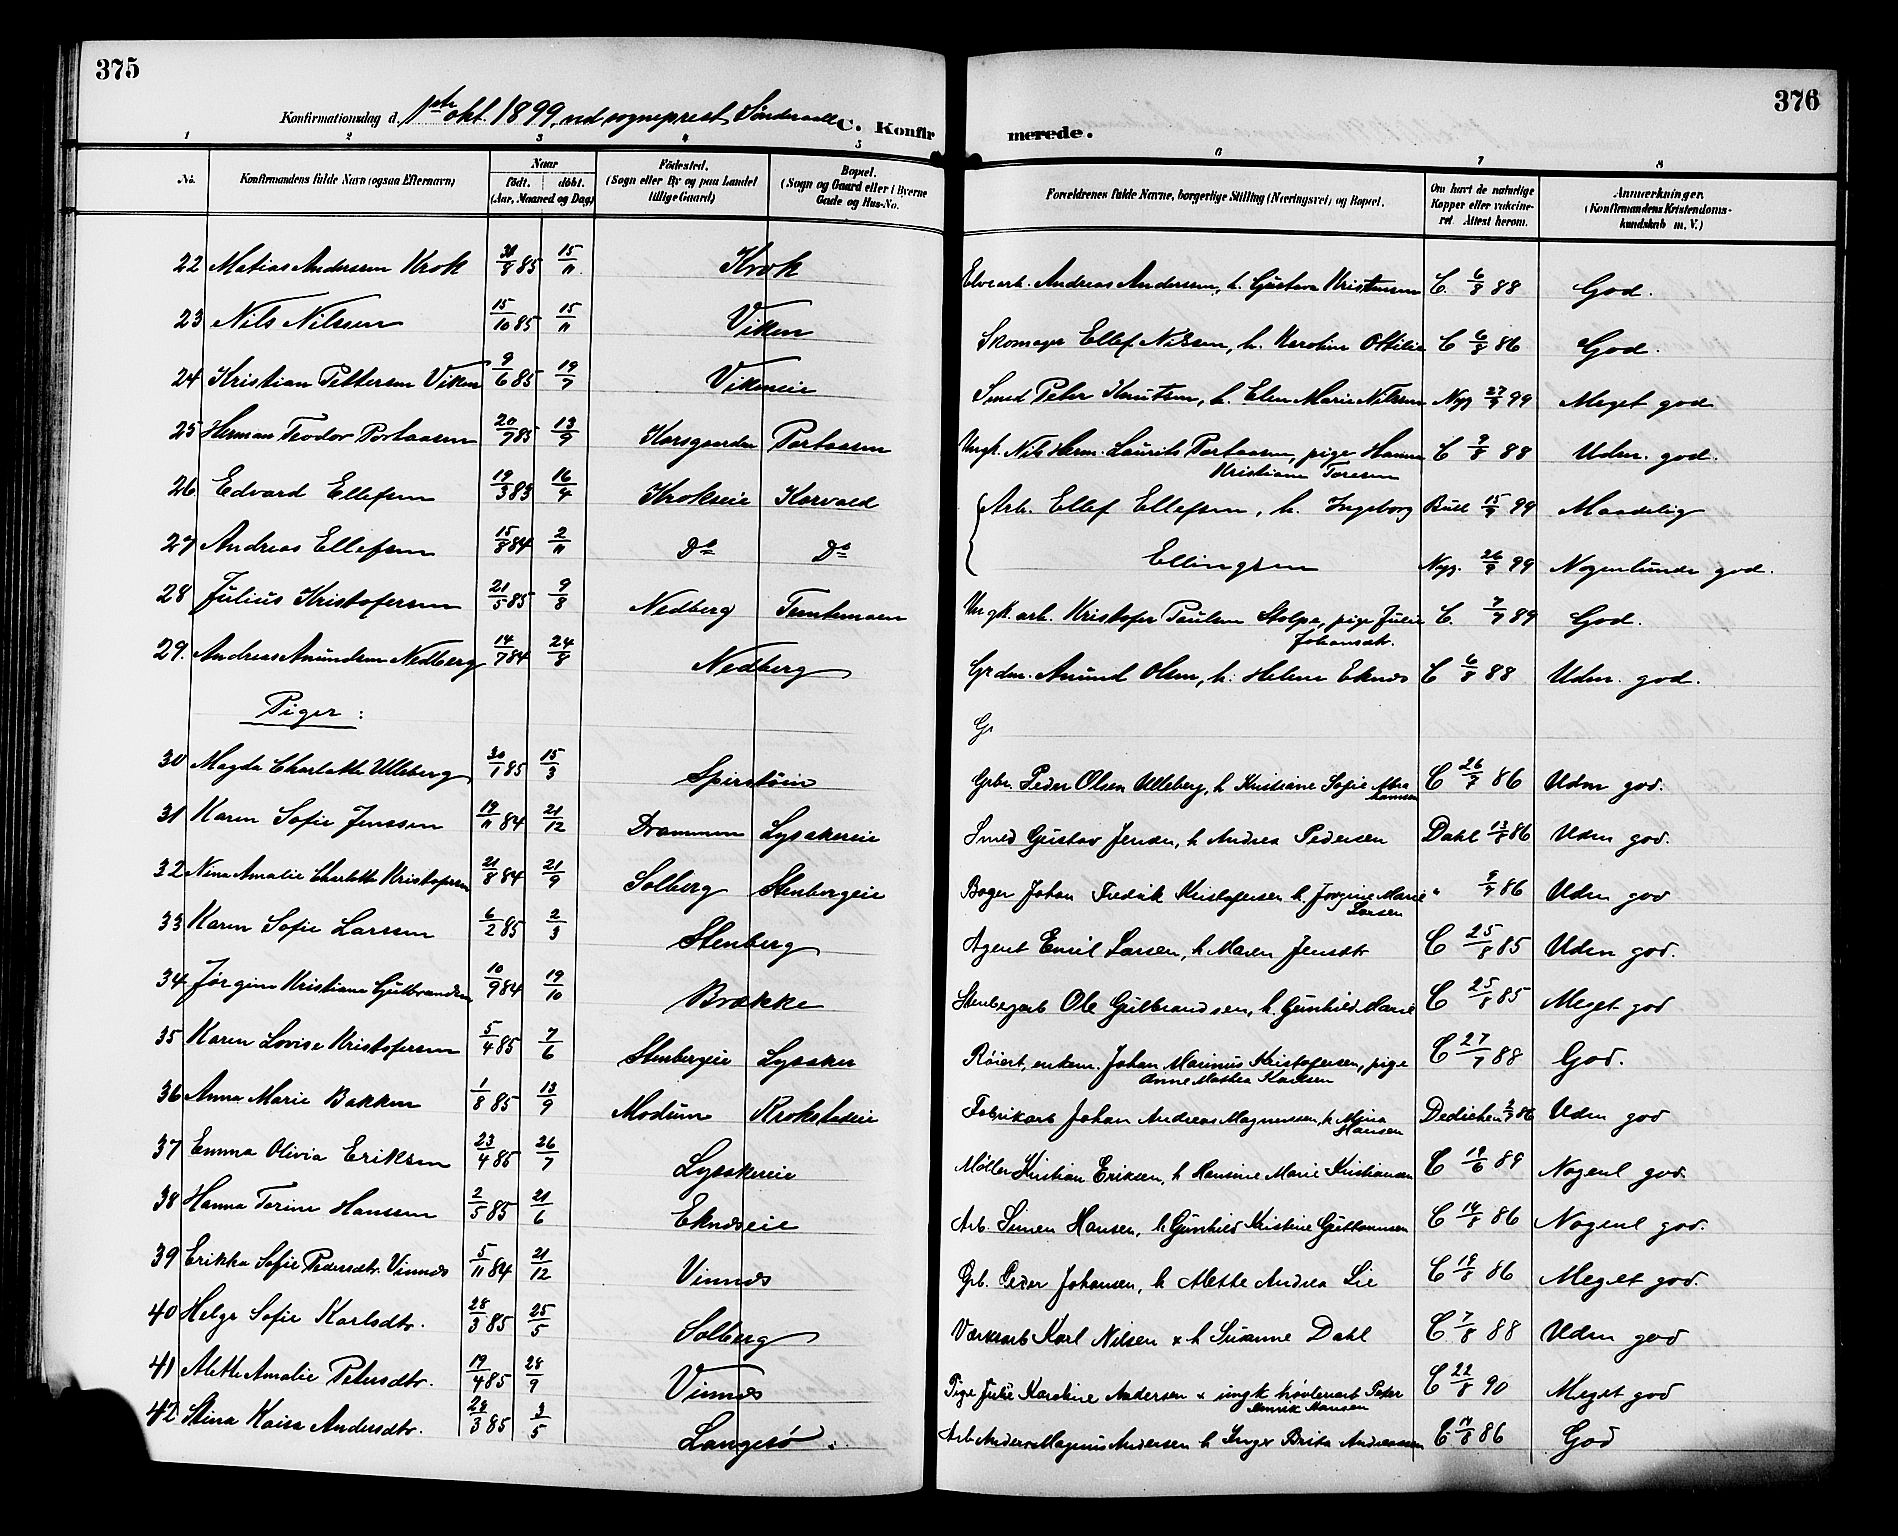 375
376
Konfirmationsdag d. 1ste okt. 1899, ved sogneprest Sinderaall C. Konfirmerede.
1 2 3 4 5 6 7 8
No. Konfirmandens fulde Navn (ogsaa Efternavn) Naar født. døbt. (Aar, Maaned og Dag) Fødested. (Sogn eller By og paa Landet tillige Gaard) Bopæl. (Sogn og Gaard eller i Byerne Gade og Hus-No. Forældrenes fulde Navne, borgerlige Stilling (Næringsvei) og Bopæl. Om havt de naturlige Kopper eller vakcineret. Attest herom. Anmærkninger. (Konfirmandens Kristendomskundskab m. V.)
22 Matias Andersen Krok 31/8 85 15/11 Krok Elvearb. Andreas Andersen, h. Gustava Kristensen C. 6/8 88 God.
23 Nils Nilssen 15/10 85 15/11 Viken Skomager Ellef Nilssen, h. Karoline Ottilie C 6/8 86 God.
24 Kristian Pettersen Viken 9/6 85 19/7 Vikeneie Smed Peter Knutsen, h. Elen Marie Nilssen Nyg 27/9 99 Meget god
25 Herman Teodor Portaasen 20/7 85 13/9 Korsgaarden Portaasen Ungk. Nils Herm. Laurits Portaasen, pige Hanna Kristiane Toresen C 9/8 88 Uden. god.
26 Edvard Ellefsen 19/3 83 16/4 Krokseie Korvald Arb. Ellef Ellefsen, h. Ingeborg Bull 15/9 99 Maadelig
27 Andreas Ellefsen 15/8 84 2/11 Do Do Ellingsen Nyg. 26/9 99 Nogenlunde god.
28 Julius Kristofersen 21/5 85 9/8 Nedberg Tomtemoen Ungk. arb. Kristofer Paulsen Stolpe, pige Julie Johansdtr. C. 7/7 89 God.
29. Andreas Amundsen Nedberg 14/7 84 24/8 Nedberg Grdm. Amund Olsen, h. Helene Eknæs C 6/8 88 Uden. god.
Piger: G
30 Magda Charlotte Ulleberg 30/1 85 15/3 Spirstøin Grbr. Peder Olsen Ulleberg, h Kristiane Sofie Abrahamsen C 26/7 86 Uden god.
31 Karen Sofie Jenssen 19/11 84 21/12 Drammen Lysakereie Smed Gustav Jensen, h Andrea Pedersen Dahl 13/8 86 Uden god.
32 Nina Amalie Charlotte Kristofersen 21/8 84 21/9 Solberg Stenbergeie Bager Johan Fredrik Kristofersen h. Jørgine Marie Larsen " 9/7 86 Uden god
33 Karen Sofie Larssen 6/2 85 2/3 Stenberg Agent Emil Larsen, h Maren Jensdtr C 25/8 85 Uden god.
34 Jørgine Kristiane Gulbrandsen 10/9 84 19/10 Brække Stenbergarb Ole Gulbrandsen, h. Gunhild Marie C 25/8 85 Meget god
35 Karen Lovise Kristofersen 5/4 85 7/6 Stenbergeie Lysaker Røiert, enkem. Johan Marinus Kristofersen, pige Anne Mathea Karlsen C 27/7 88 God.
36 Anna Marie Bakken 1/8 85 13/9 Modum Krokstadeie Fabrikarb Johan Andreas Magnussen, h. Mina Hansen Dedichen 2/9 86 Uden god
37 Emma Olivia Eriksen 23/4 85 26/7 Lysakereie Møller Kristian Eriksen, h Hansine Marie Kristiansen C 19/6 89 Nogenl god.
38 Hanna Torine Hanssen 2/5 85 21/6 Eknæseie Arb. Simen Hansen, h Gunhild Kristine Guttormsen C 14/8 86 Nogenl god.
39 Erikka Sofie Pedersdtr. Vinnæs 5/11 84 21/12 Vinnæs Grb. Peder Johansen, h Mette Andrea Lie C 19/8 86 Meget god.
40 Helga Sofie Karlsdtr. 28/3 85 25/5 Solberg Værksarb Karl Nilsen & h Susanne Dahl C 7/8 88 Uden god
41 Alette Amalie Petersdtr. 19/4 85 28/9 Vinnæs Pige Julie Karoline Andersen & ungk høvleriarb Peter Anrik Hansen C 22/8 90 Meget god
42 Stina Kaisa Andersdtr. 28/3 85 3/5 Langesø Arb Anders Magnus Andersen h Inger Brita Andreassen C 14/8 86 God